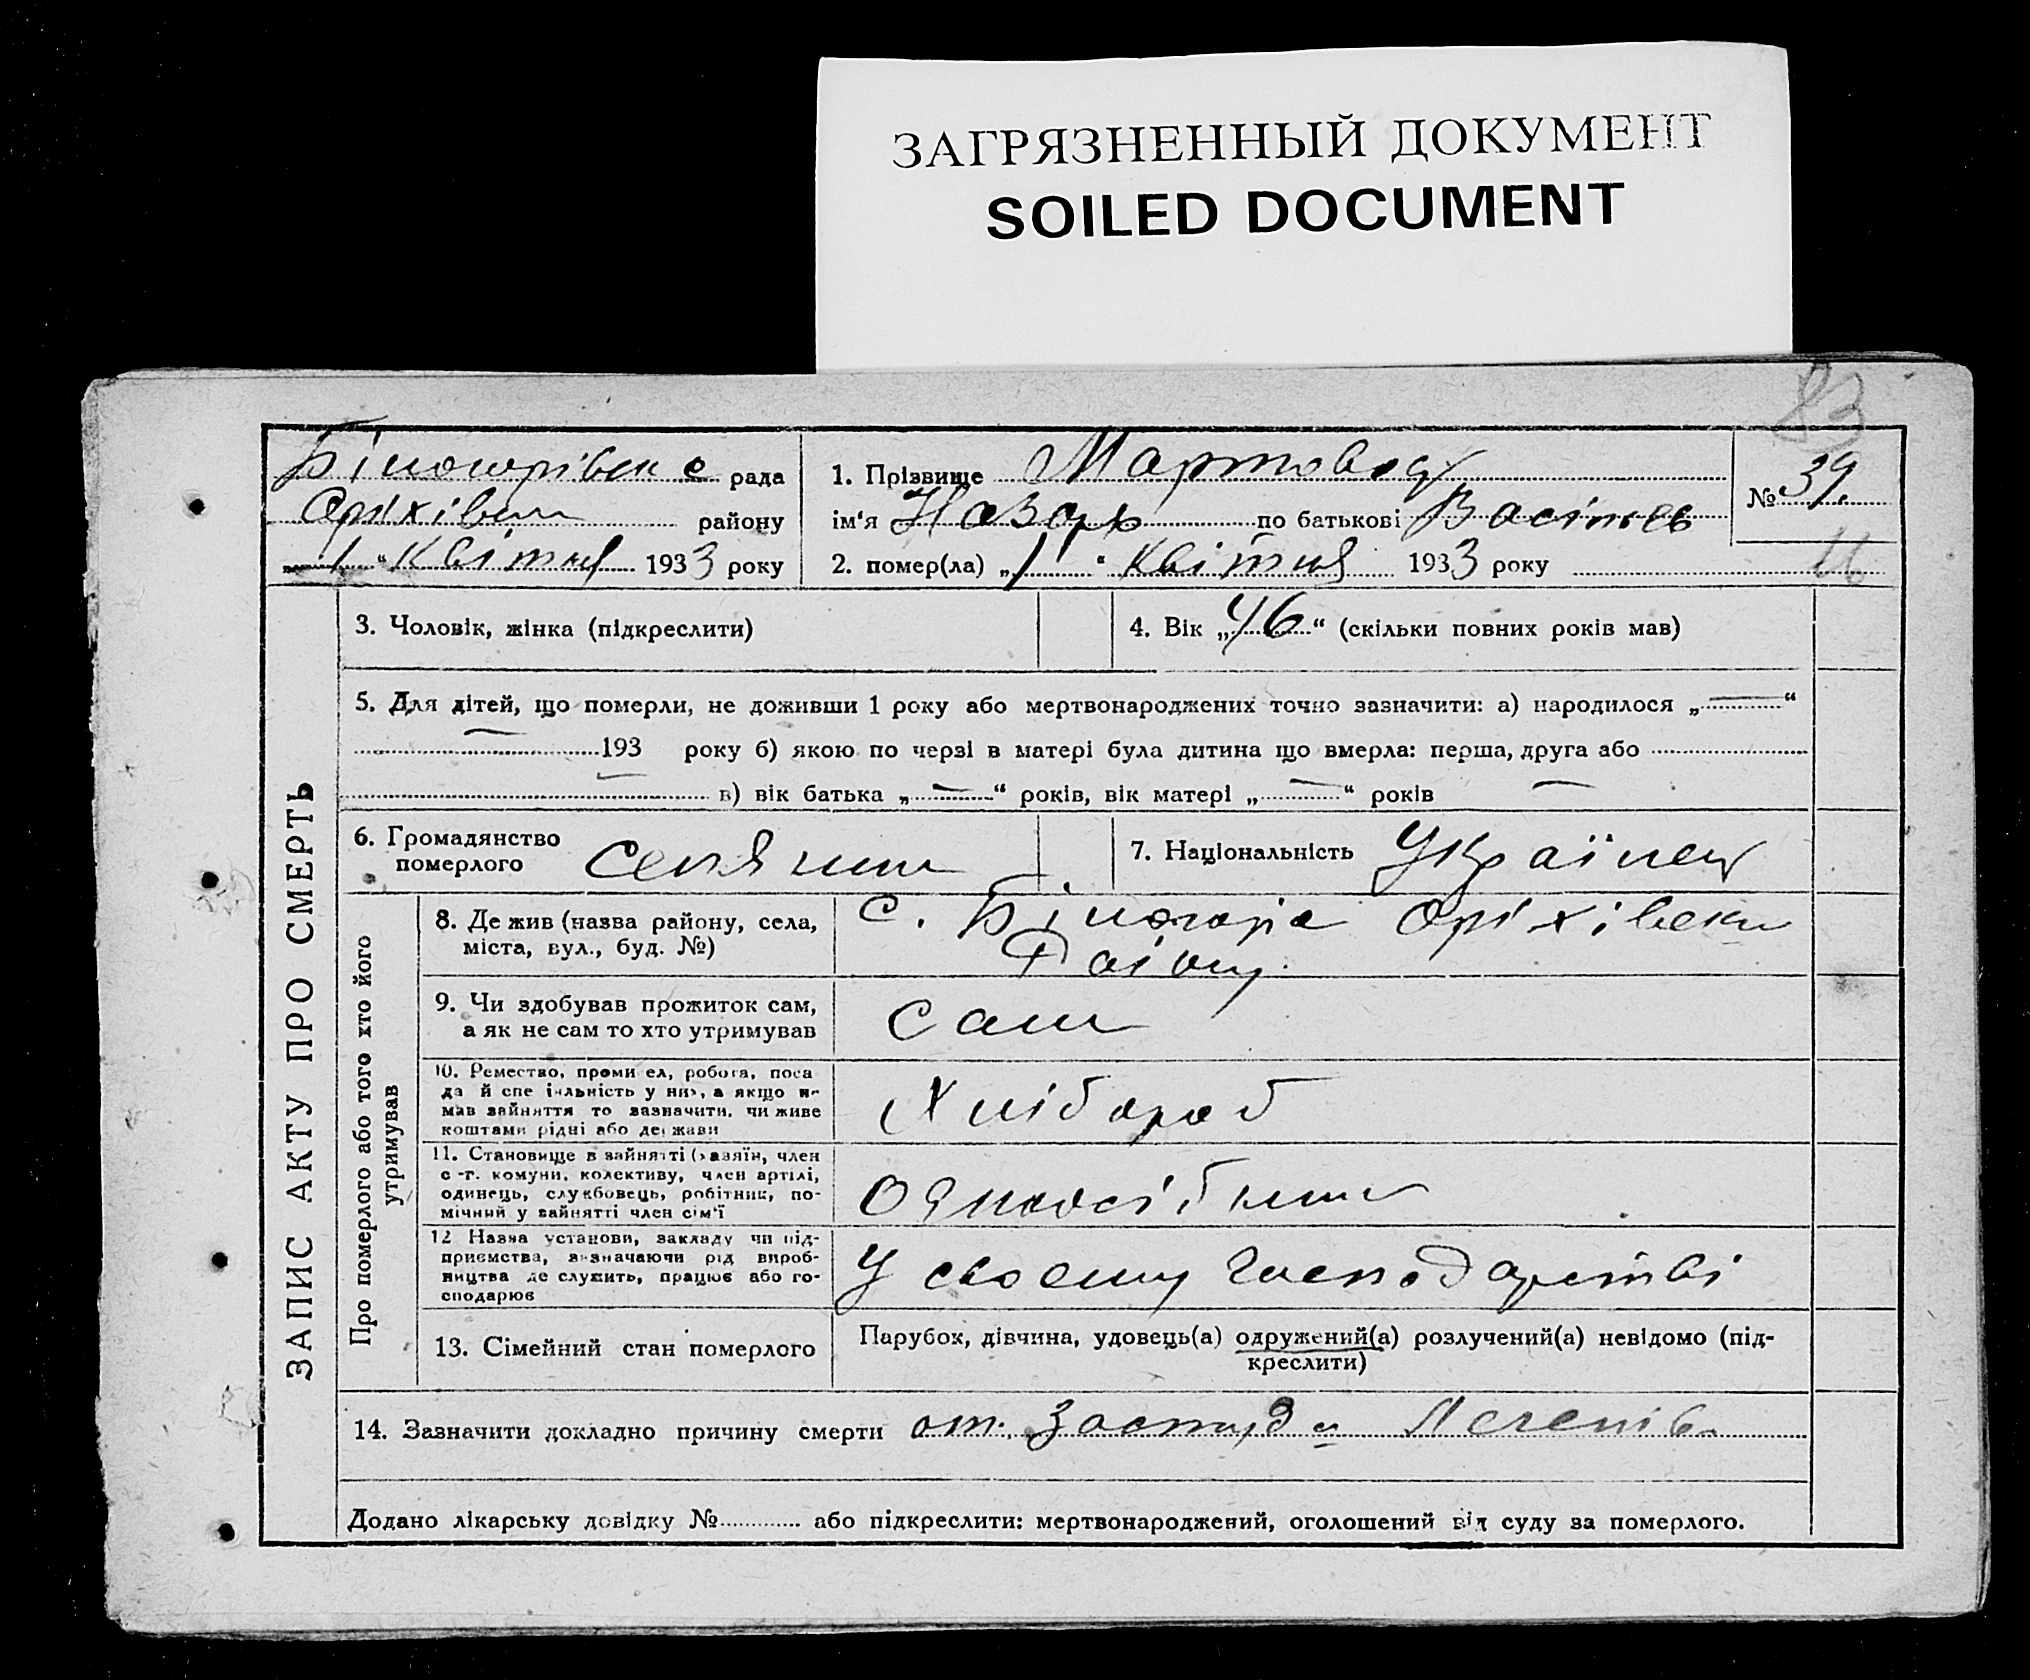 ЗАГРЯЗНЕННЫЙ ДОКУМЕНТ
SOILED DOCUMENT
83
Білогорівська рада
Оріхівськ району
„1“ Квітня 1933 року
1. Прізвище
ім'я Назарь по батькові Васілев
2. помер(ла) „1“ Квітня 1933 року
№ 39.
16
ЗАПИС АКТУ ПРО СМЕРТЬ
3. Чоловік, жінка (підкреслити)
4. Вік „46“ (скільки повних років мав)
5. Для дітей, що померли, не доживши 1 року або мертвонароджених точно зазначити: а) народилося „—“
— 193 року б) якою по черзі в матері була дитина що вмерла: перша, друга або
в) вік батька „—“ років, вік матері „—“ років —
6. Громадянство
померлого Селянин
7. Національність Українец
Про померлого або того хто його
утримував
8. Де жив (назва району, села,
міста, вул., буд. №)
с. Білогорє Оріхівськ
Району
9. Чи здобував прожиток сам,
а як не сам то хто утримував
Сам
10. Ремество, промисел, робота, поса
да й спеціяльність у них, а якщо не
мав зайняття то зазначити, чи живе
коштами рідні або держави
Хлібороб
11. Становище в зайнятті (хазяїн, член
с-г. комуни, колективу, член артілі,
одинець, службовець, робітник, по-
мічний у зайнятті член сім'ї
Одноосібник
12 Назва установи, закладу чи під-
приємства, зазначаючи рід вироб-
ництва де служить, працює або го-
сподарює
У своєму Господарстві
13. Сімейний стан померлого
Парубок, дівчина, удовець(а) одружений(а) розлучений(а) невідомо (під-
креслити)
14. Зазначити докладно причину смерти от. Застуди Легенів
Додано лікарську довідку № або підкреслити: мертвонароджений, оголошений від суду за померлого.